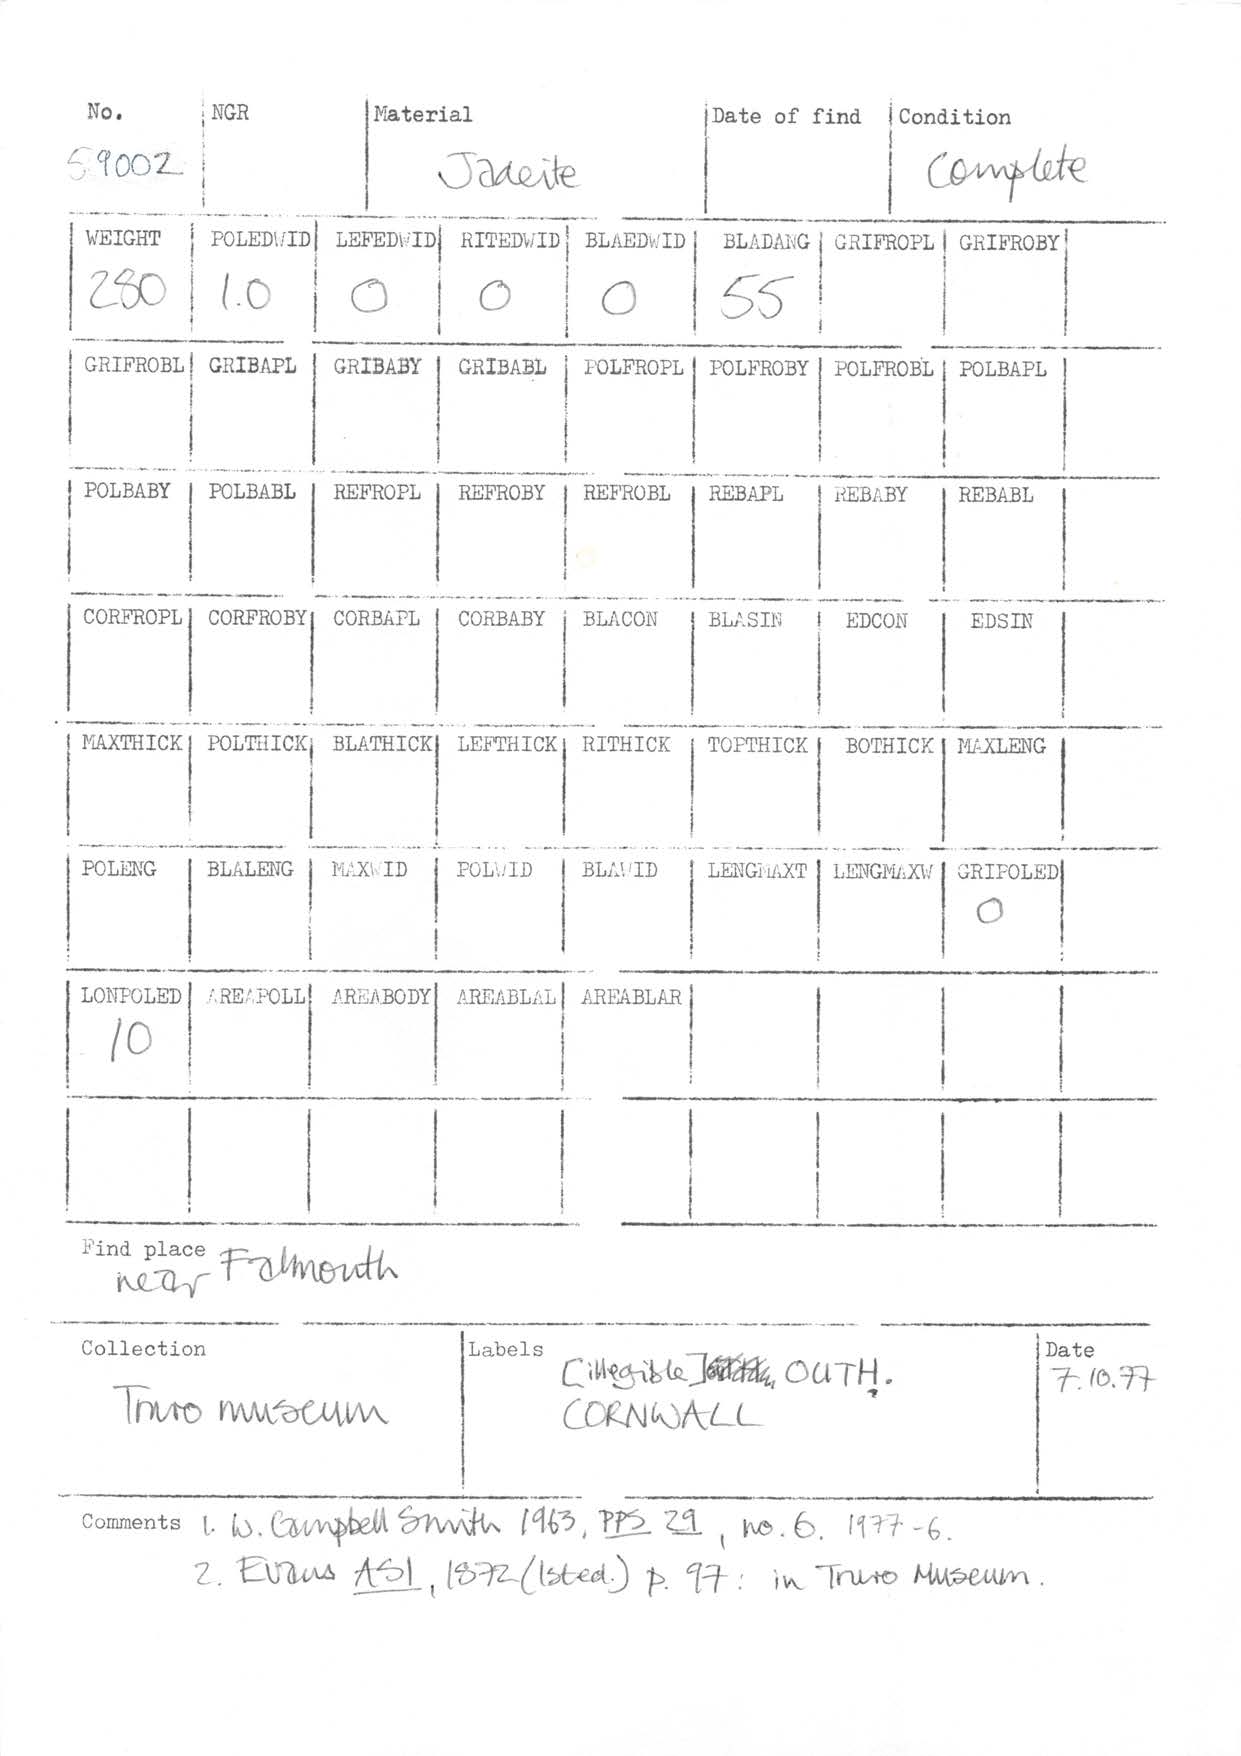 No. NGR Material Date of find Condition
59002 Jadeite Complete
WEIGHT POLEDWID LEFEDWID RITEDWID BLAEDWID BLADANG GRIFROPL GRIFROBY
280 1.0 0 0 0 55
GRIFROBL GRIBAPL GRIBABY GRIBABL POLFROPL POLFROBY POLFROBL POLBAPL
POLBABY POLBABL REFROPL REFROBY REFROBL REBAPL REBABY REBABL
CORFROPL CORFROBY CORBAPL CORBABY BLACON BLASIN EDCON EDSIN
MAXTHICK POLTHICK BLATHICK LEFTHICK RITHICK TOPTHICK BOTHICK MAXLENG
POLENG BLALENG MAXWID POLWID BLAWID LENGMAXT LENGMAXW GRIPOLED
0
LONPOLED AREAPOLL AREABODY AREABLAL AREABLAR
10
Find place
near Falmouth
Collection Labels Date
[illegible] OUTH. 7.10.77
Truro museum CORNWALL
Comments 1. W. Campbell Smith 1963, PPS 29, no. 6. 1977-6.
2. Evans ASI, 1872 (1st ed.) p. 97: in Truro Museum.